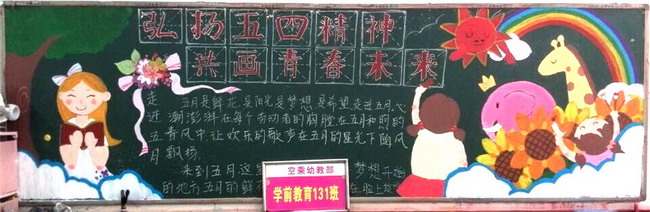 弘扬五四精神
共画青春未来
走进五月
五月是鲜花是阳光是梦想是希望走进五月心
潮澎湃在每个劳动者的胸膛在五月和煦的
春风中让欢乐的歌声在五月的星光下随风
飘扬
来到五月这
梦想开
的地方五月的鲜
在脸上
空乘幼教部
学前教育131班